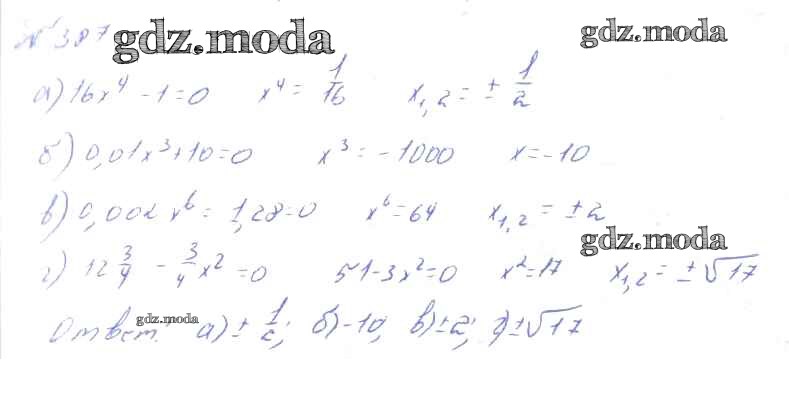 №387 gdz.moda gdz.moda
а) 16x⁴ - 1 = 0 x⁴ = 1/16 x₁,₂ = ± 1/2
б) 0,01x³ + 10 = 0 x³ = -1000 x = -10
в) 0,002 x⁶ = 1,28 = 0 x⁶ = 64 x₁,₂ = ±2
gdz.moda
г) 12 3/4 - 3/4 x² = 0 51 - 3x² = 0 x² = 17 x₁,₂ = ±√17
Ответ. gdz.moda а) ± 1/2; б) -10; в) ±2; г) ±√17